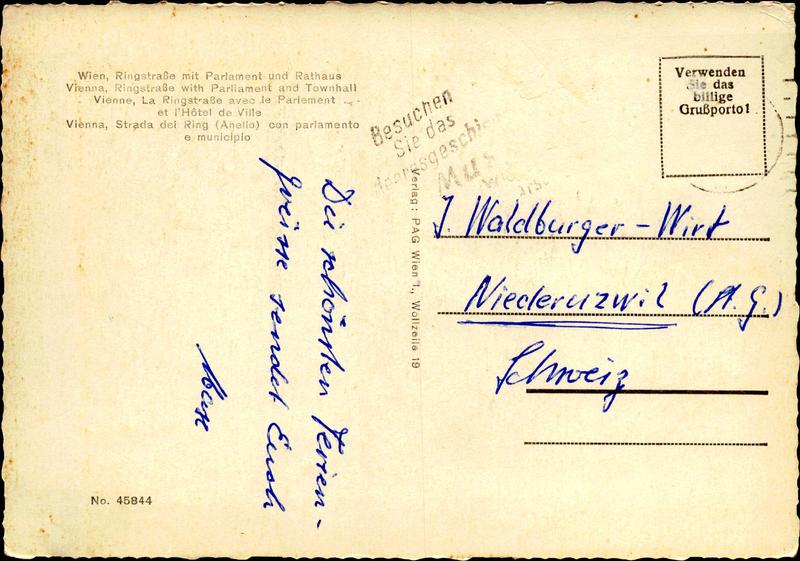 Wien, Ringstraße mit Parlament und Rathaus
Vienna, Ringstraße with Parliament and Townhall
Vienne, La Ringstraße avec le Parlement
et l'Hôtel de Ville
Vienna, Strada del Ring (Anello) con parlamento
e municipio
Besuchen
Sie das
Heeresgeschi
Mus
Verwenden
Sie das
billige
Grußporto!
Verlag: PAG Wien 1., Wollzeile 19
Die schönsten Ferien-
grüsse sendet Euch
J. Waldburger-Wirt
Niederuzwil (St. G.)
Schweiz
No. 45844